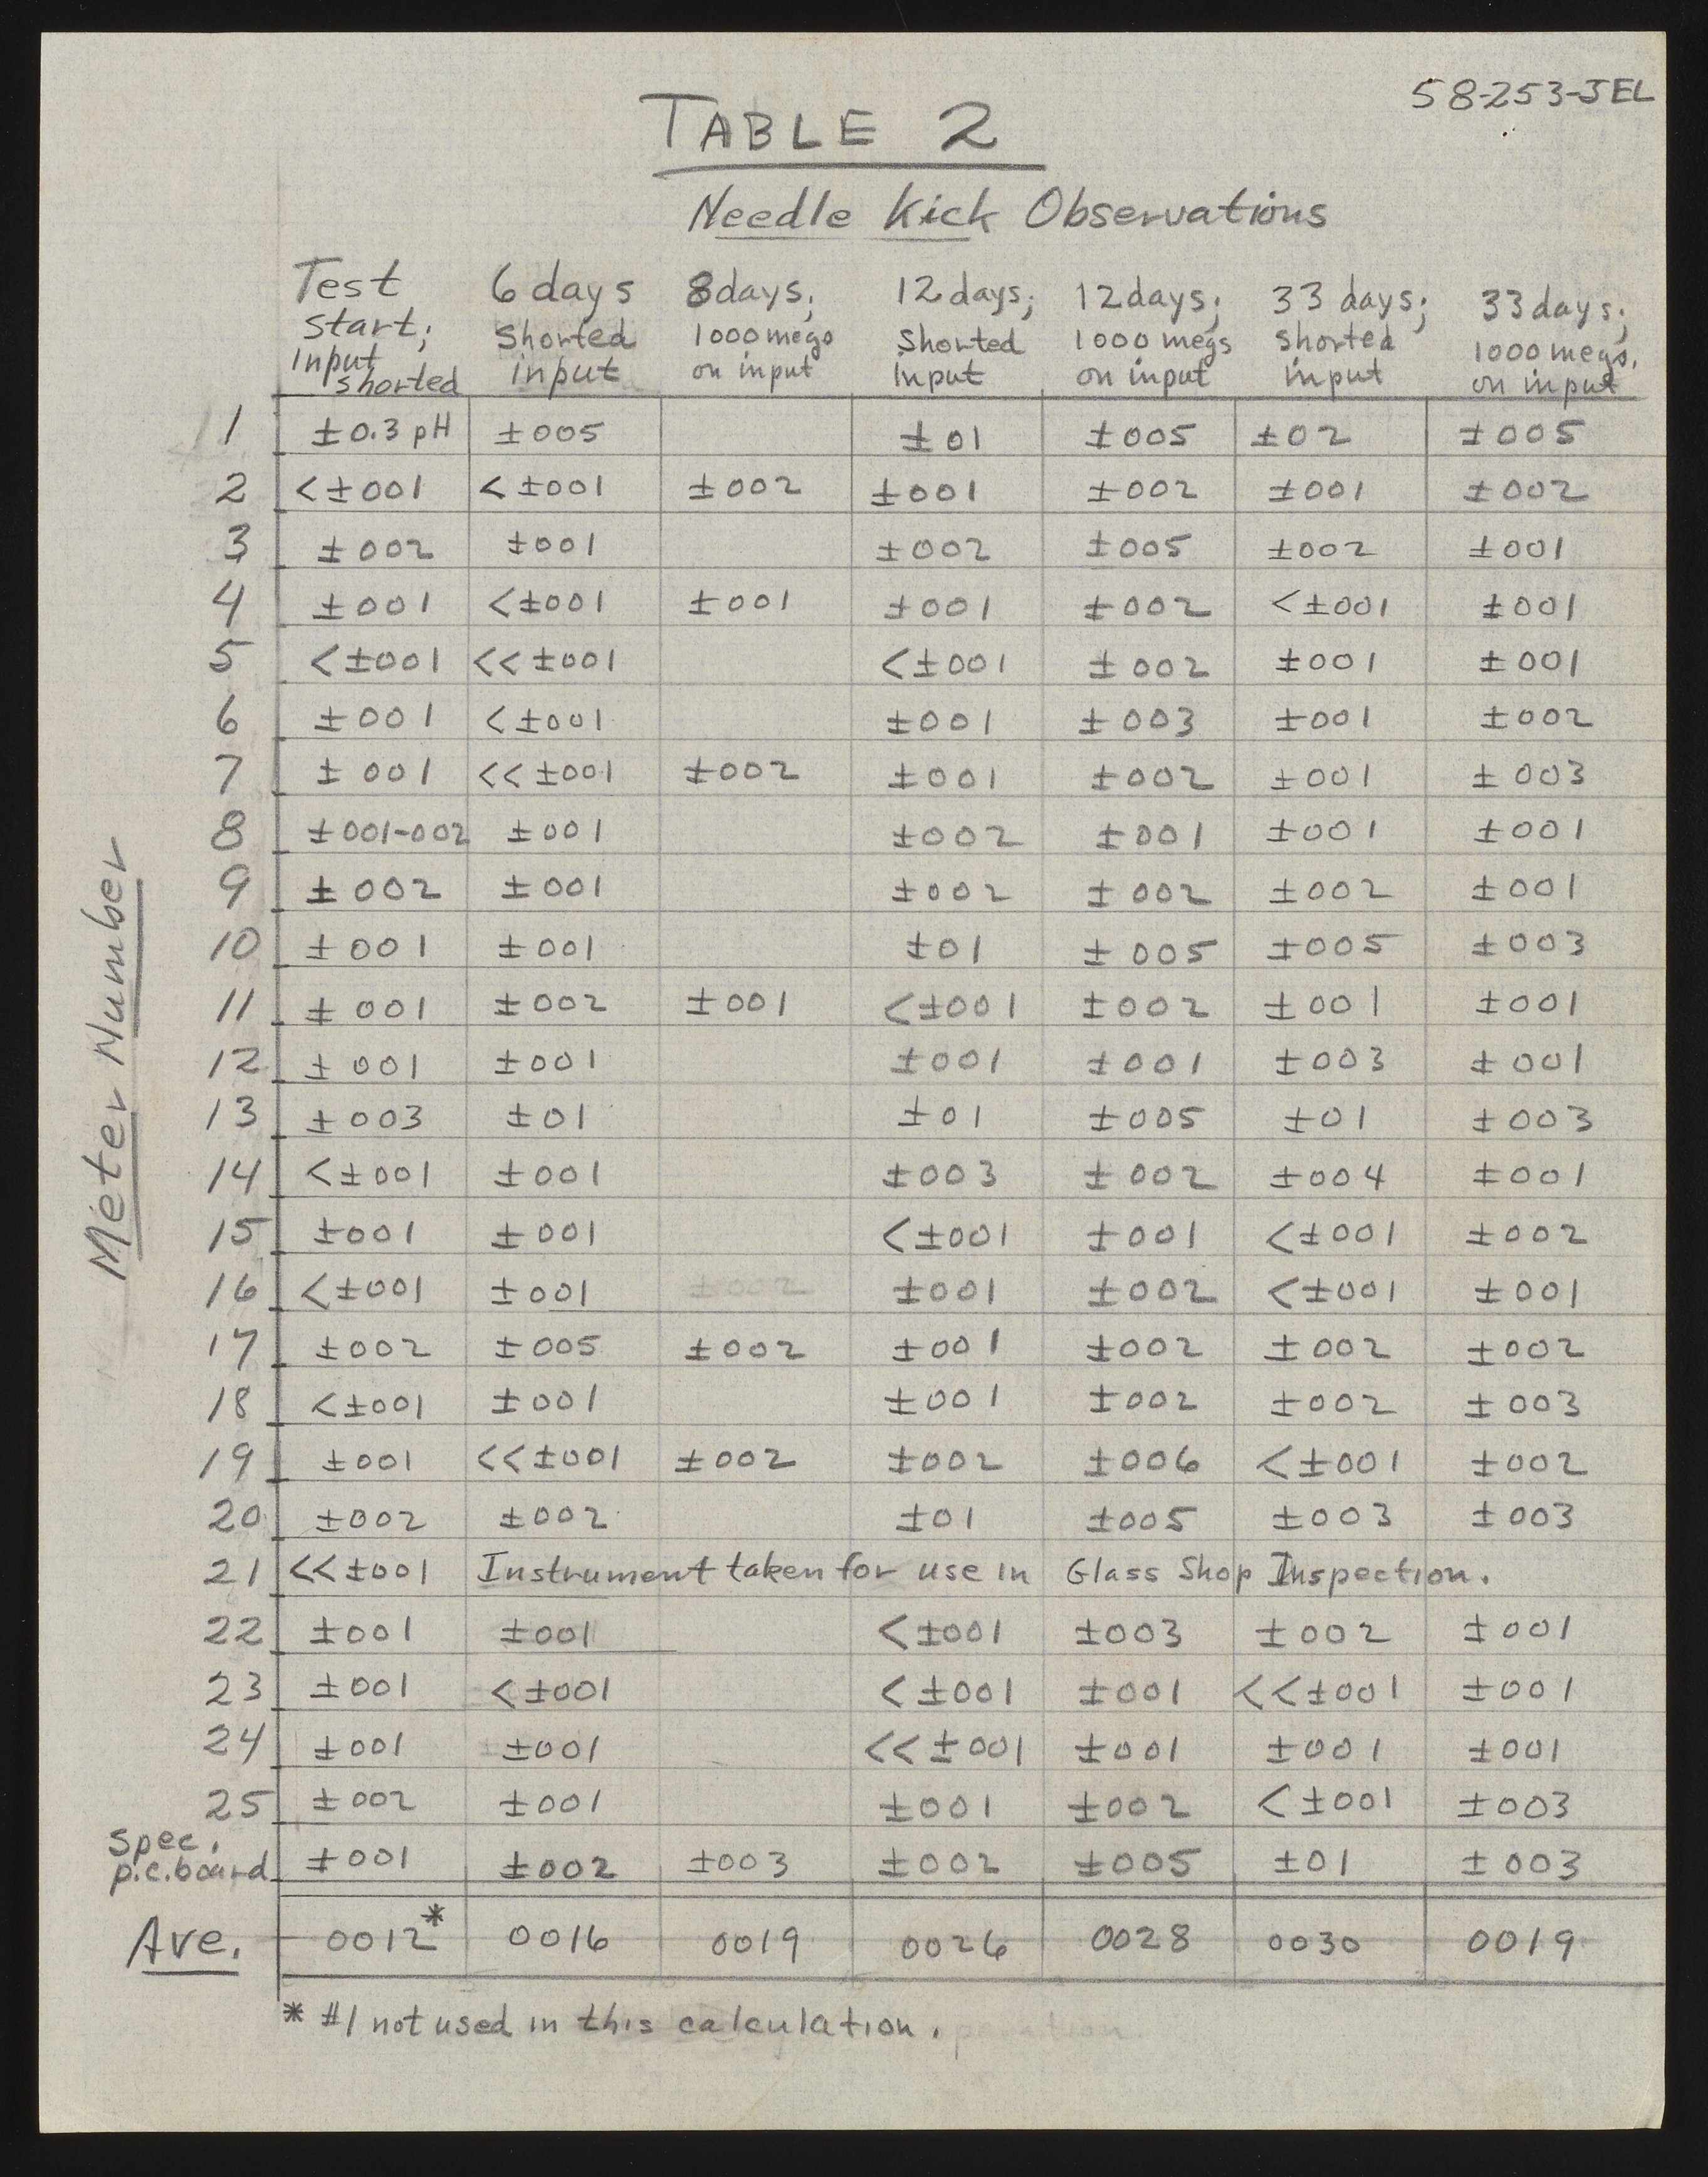 58-253-JEL
TABLE 2
Needle Kick Observations
Test start; input shorted | 6 days shorted input | 8 days; 1000 megs on input | 12 days; shorted input | 12 days; 1000 megs on input | 33 days; shorted input | 33 days; 1000 megs. on input
Meter Number
1 ±0.3 pH ±005 ±01 ±005 ±02 ±005
2 <±001 <±001 ±002 ±001 ±002 ±001 ±002
3 ±002 ±001 ±002 ±005 ±002 ±001
4 ±001 <±001 ±001 ±001 ±002 <±001 ±001
5 <±001 <<±001 <±001 ±002 ±001 ±001
6 ±001 <±001 ±001 ±003 ±001 ±002
7 ±001 <<±001 ±002 ±001 ±002 ±001 ±003
8 ±001-002 ±001 ±002 ±001 ±001 ±001
9 ±002 ±001 ±002 ±002 ±002 ±001
10 ±001 ±001 ±01 ±005 ±005 ±003
11 ±001 ±002 ±001 <±001 ±002 ±001 ±001
12 ±001 ±001 ±001 ±001 ±003 ±001
13 ±003 ±01 ±01 ±005 ±01 ±003
14 <±001 ±001 ±003 ±002 ±004 ±001
15 ±001 ±001 <±001 ±001 <±001 ±002
16 <±001 ±001 ±002 ±001 ±002 <±001 ±001
17 ±002 ±005 ±002 ±001 ±002 ±002 ±002
18 <±001 ±001 ±001 ±002 ±002 ±003
19 ±001 <<±001 ±002 ±002 ±006 <±001 ±002
20 ±002 ±002 ±01 ±005 ±003 ±003
21 <<±001 Instrument taken for use in Glass Shop Inspection.
22 ±001 ±001 <±001 ±003 ±002 ±001
23 ±001 <±001 <±001 ±001 <<±001 ±001
24 ±001 ±001 <<±001 ±001 ±001 ±001
25 ±002 ±001 ±001 ±002 <±001 ±003
Spec. p.c. board ±001 ±002 ±003 ±002 ±005 ±01 ±003
Ave. 0012* 0016 0019 0026 0028 0030 0019
* #1 not used in this calculation.